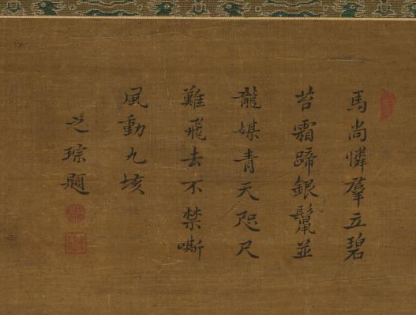 馬尚憐羣立碧
苔霜蹄銀鬣並
龍媒青天咫尺
難飛去不禁嘶
風動九垓
芝琮題